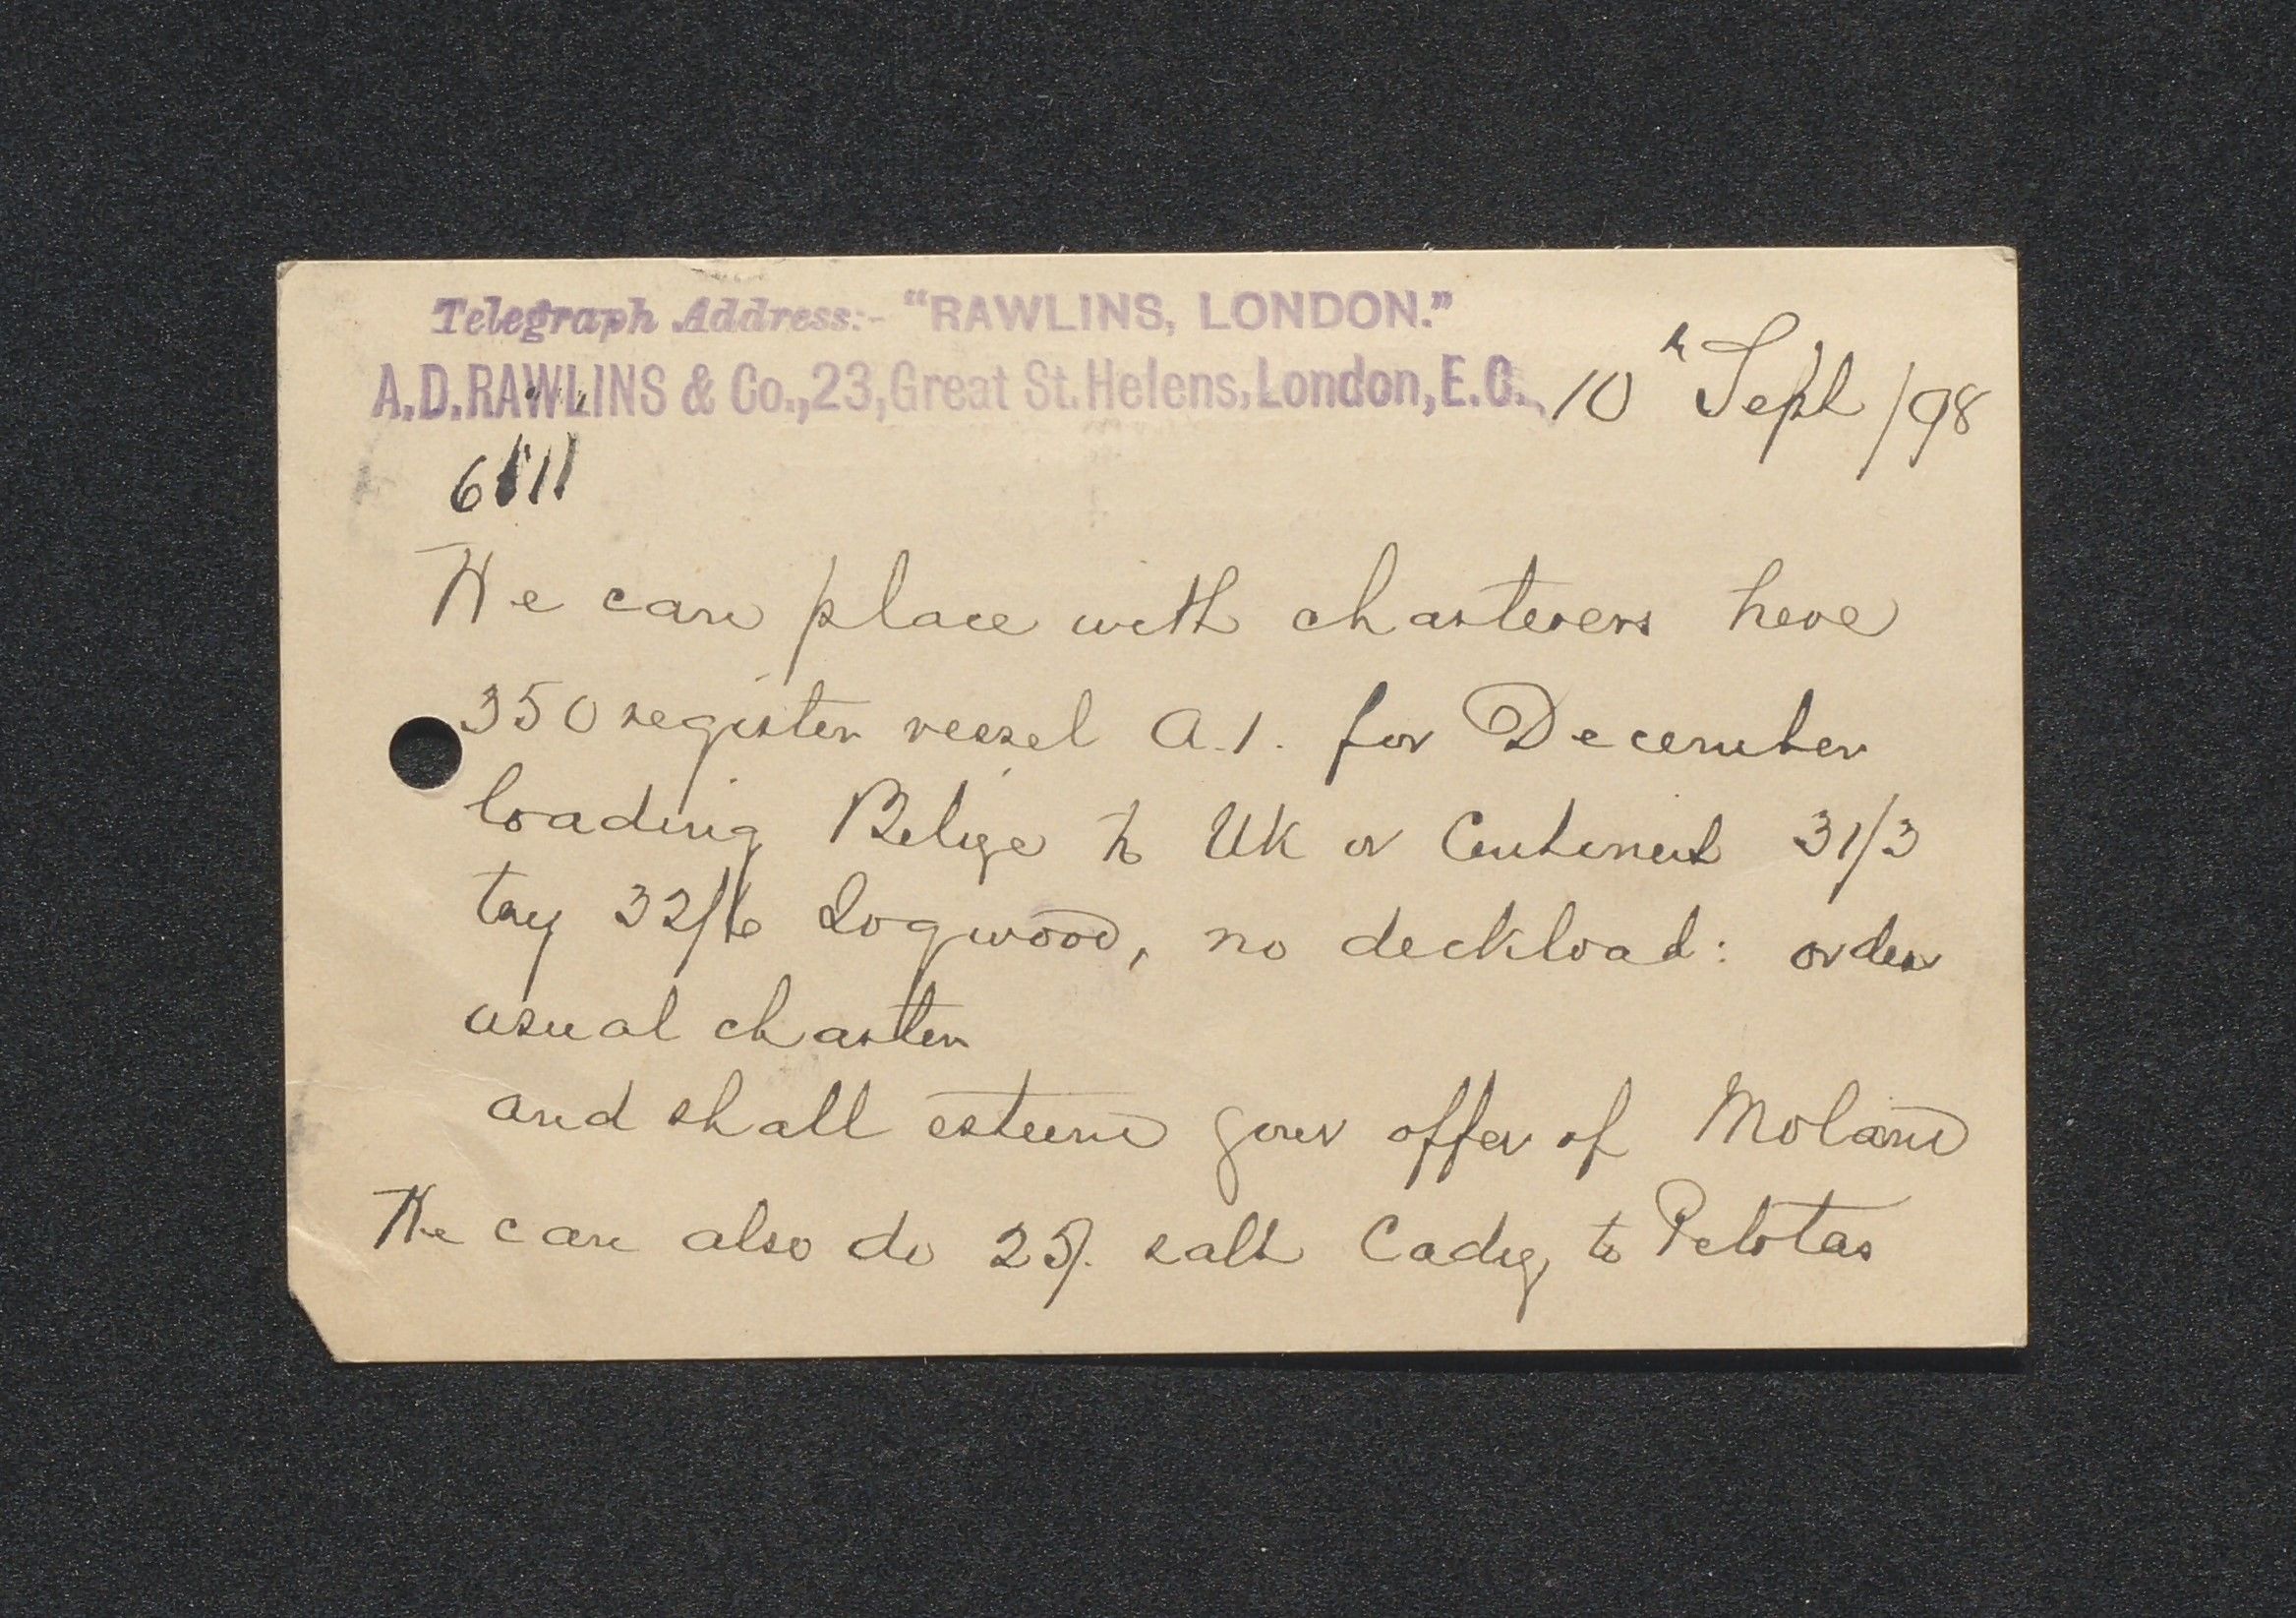 Telegraph Address:- "RAWLINS, LONDON."
A.D. RAWLINS & Co., 23, Great St. Helens, London, E.C., 10th Sept /98
We can place with charterers here
350 register vessel A.1. for December
loading Belize to UK or Continent 31/3
try 32/6 Logwood, no deckload: order
usual charter
and shall esteem your offer of
We can also do 25/. salt Cadiz to Pelotas